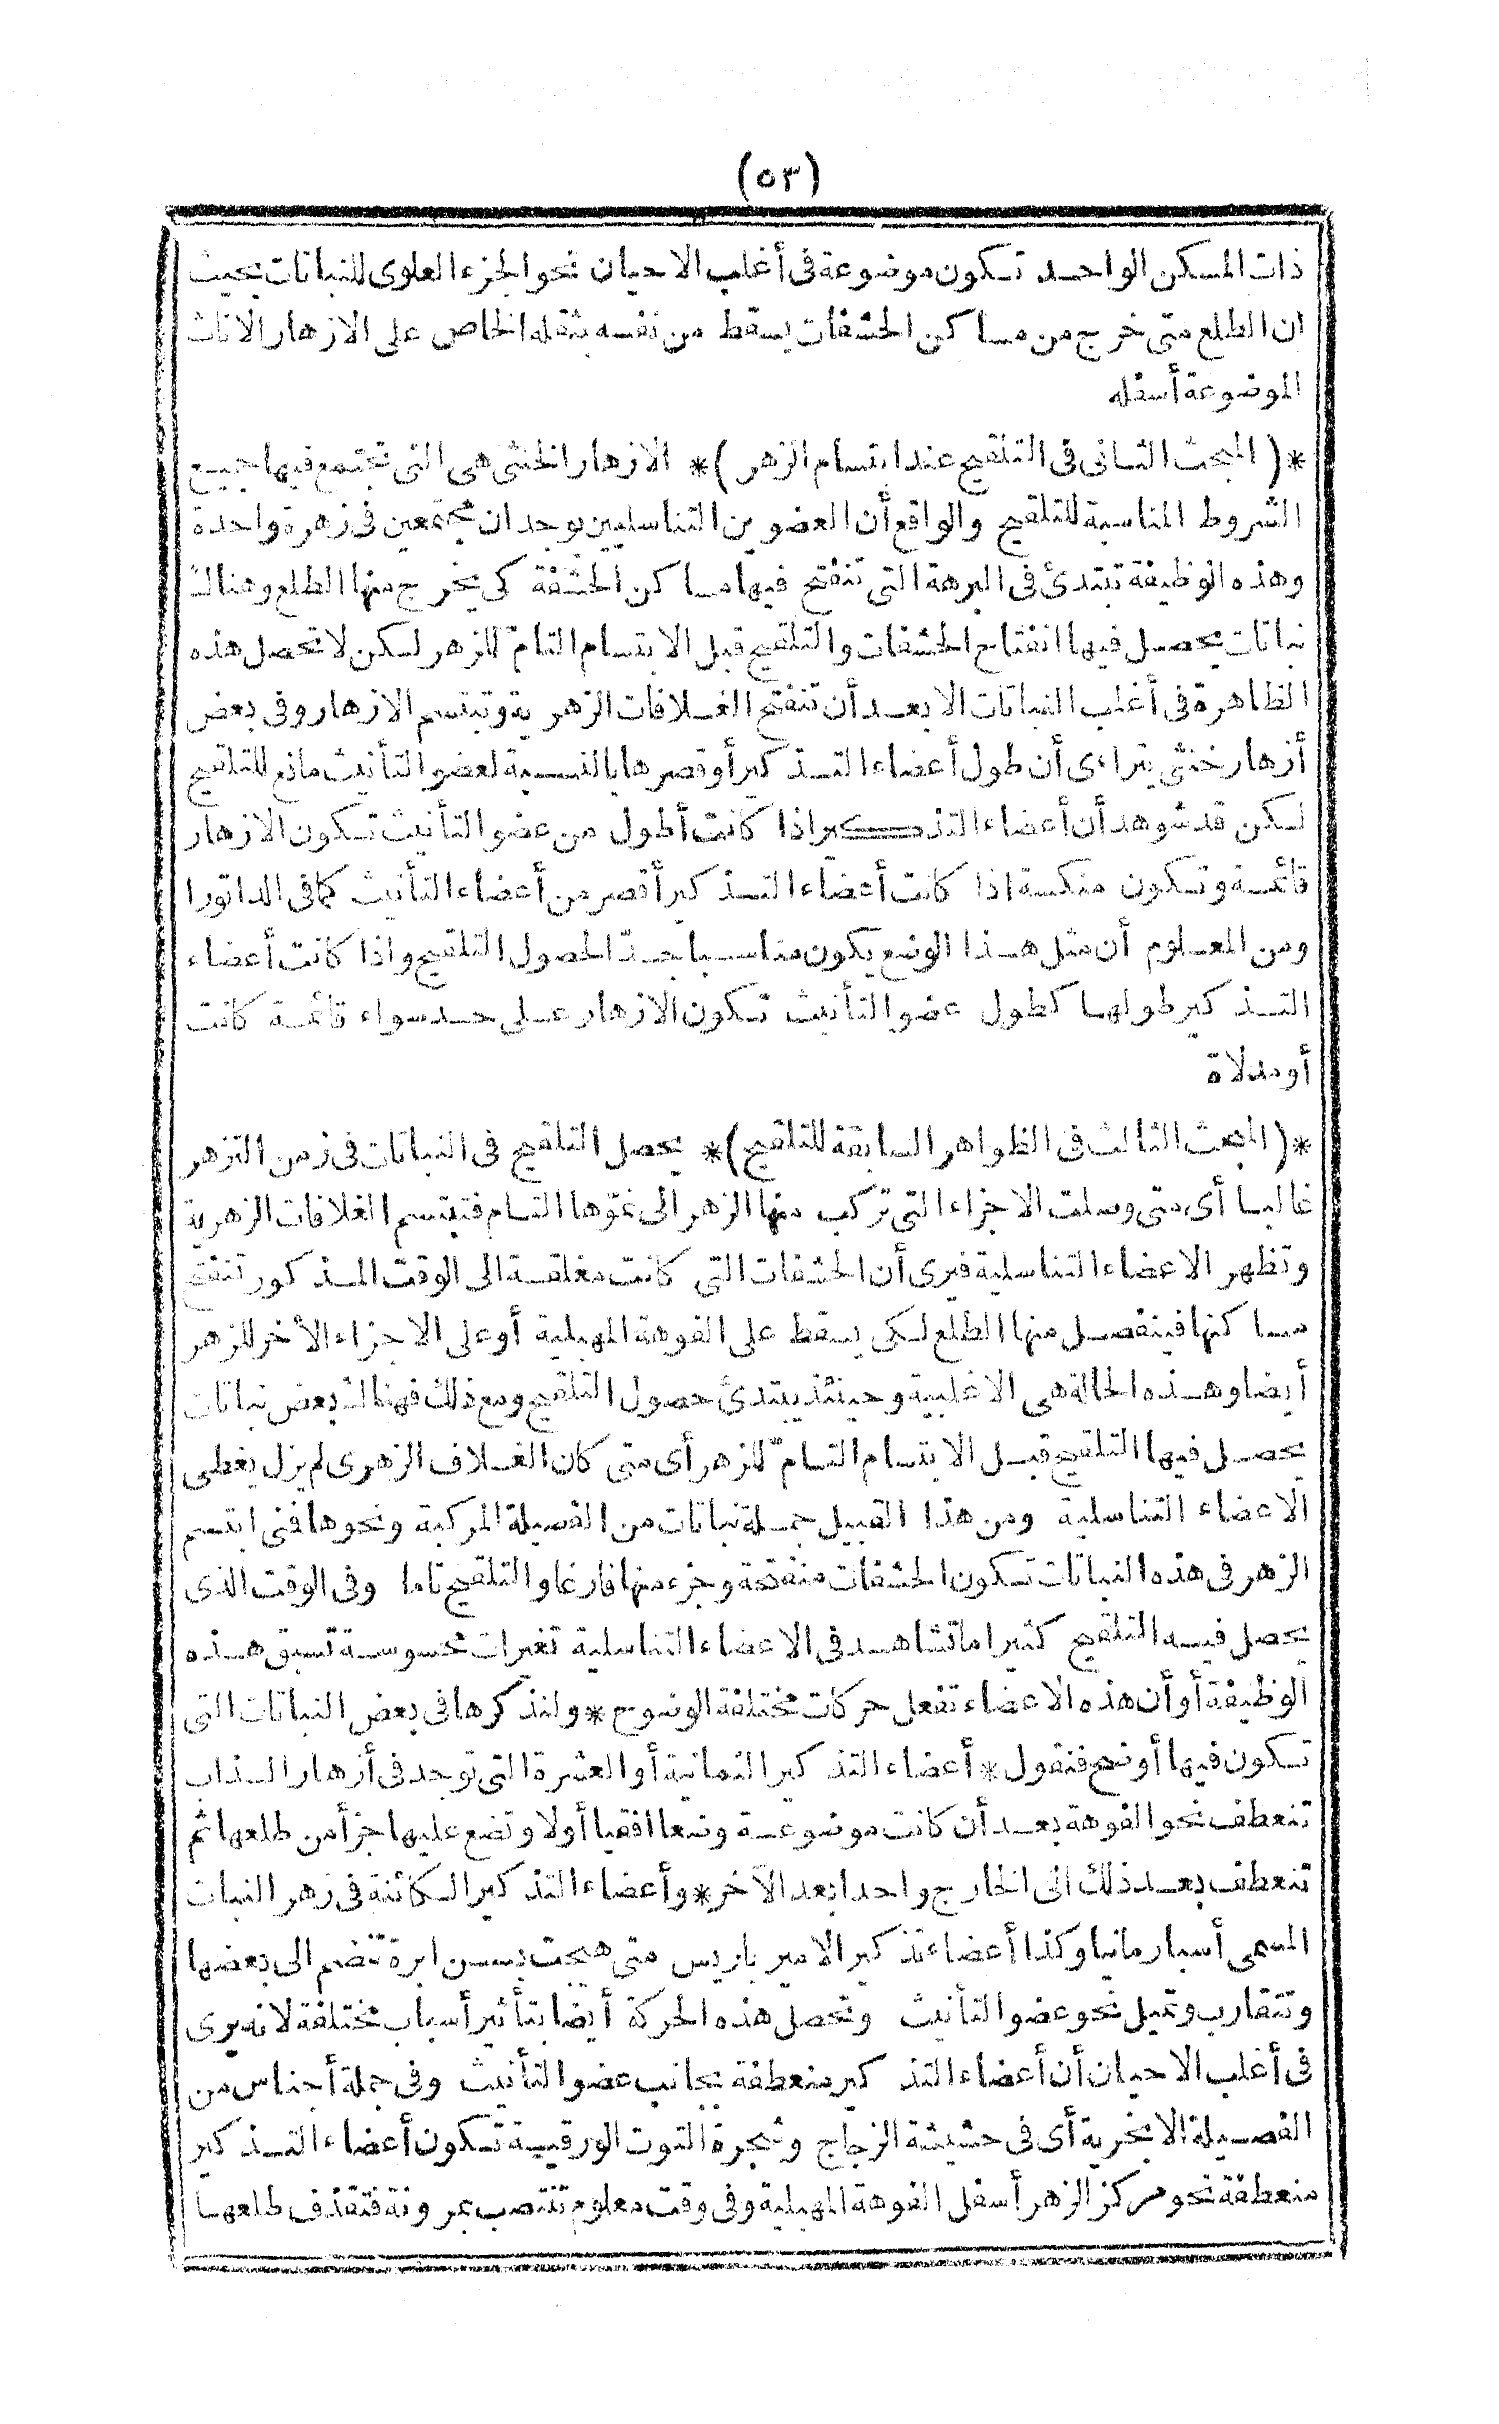 (٥٣)
ذات المسكن الواحد تكون موضوعة فى أغلب الاحيان نحو الجزء العلوى للنباتات بحيث
ان الطلع متى خرج من مساكن الحشفات يسقط من نفسه بثقله الخاص على الازهار الاناث
الموضوعة أسفله
*(المبحث الثانى فى التلقيح عند ابتسام الزهر)* الازهار الخنثى هى التى تجتمع فيها جميع
الشروط المناسبة للتلقيح والواقع أن العضوين التناسليين يوجدان مجتمعين فى زهرة واحدة
وهذه الوظيفة تبتدئ فى البرهة التى تنفتح فيها مساكن الحشفة كى يخرج منها الطلع وهناك
نباتات يحصل فيها انفتاح الحشفات والتلقيح قبل الابتسام التام للزهر لكن لا تحصل هذه
الظاهرة فى أغلب النباتات الا بعد أن تنفتح الغلافات الزهرية وتبتسم الازهار وفى بعض
أزهار خنثى يتراءى أن طول أعضاء التذكير أو قصرها بالنسبة لعضو التأنيث مانع للتلقيح
لكن قد شوهد أن أعضاء التذكير اذا كانت أطول من عضو التأنيث تكون الازهار
قائمة وتكون منكسة اذا كانت أعضاء التذكير أقصر من أعضاء التأنيث كما فى الداتورا
ومن المعلوم أن مثل هذا الوضع يكون مناسبا جدّا لحصول التلقيح واذا كانت أعضاء
التذكير طولها كطول عضو التأنيث تكون الازهار على حد سواء قائمة كانت
أو مدلاة
*(المبحث الثالث فى الظواهر السابقة للتلقيح)* يحصل التلقيح فى النباتات فى زمن التزهر
غالبا أى متى وصلت الاجزاء التى تركب منها الزهر الى نموّها التام فتبتسم الغلافات الزهرية
وتظهر الاعضاء التناسلية فيرى أن الحشفات التى كانت مغلقة الى الوقت المذكور تنفتح
مساكنها فينفصل منها الطلع لكى يسقط على الفوهة المهبلية أو على الاجزاء الأخر للزهر
أيضا وهذه الحالة هى الاغلبية وحينئذ يبتدئ حصول التلقيح ومع ذلك فهناك بعض نباتات
يحصل فيها التلقيح قبل الابتسام التامّ للزهر أى متى كان الغلاف الزهرى لم يزل يغطى
الاعضاء التناسلية ومن هذا القبيل جملة نباتات من الفصيلة المركبة ونحوها فتى ابتسم
الزهر فى هذه النباتات تكون الحشفات منفتحة وجزء منها فارغا والتلقيح تاما وفى الوقت الذى
يحصل فيه التلقيح كثيرا ما تشاهد فى الاعضاء التناسلية تغيرات محسوسة تسبق هذه
الوظيفة أو أن هذه الاعضاء تفعل حركات مختلفة الوضوح * ولنذكرها فى بعض النباتات التى
تكون فيها أوضح فنقول * أعضاء التذكير الثمانية أو العشرة التى توجد فى أزهار السذاب
تنعطف نحو الفوهة بعد أن كانت موضوعة وضعا افقيا أولا وتضع عليها جزأ من طلعها ثم
تنعطف بعد ذلك الى الخارج واحدا بعد الآخر * وأعضاء التذكير الكائنة فى زهر النبات
المسمى أسبارمانيا وكذا أعضاء تذكير الامير باريس متى هيجت بسن ابرة تنضم الى بعضها
وتتقارب وتميل نحو عضو التأنيث وتحصل هذه الحركة أيضا بتأثير أسباب مختلفة لانه يرى
فى أغلب الاحيان أن أعضاء التذكير منعطفة بجانب عضو التأنيث وفى جملة أجناس من
الفصيلة الانجرية أى فى حشيشة الزجاج وشجرة التوت الورقيية تكون أعضاء التذكير
منعطفة نحو مركز الزهر أسفل الفوهة المهبلية وفى وقت معلوم تنتصب بمرونة فتقذف طلعها